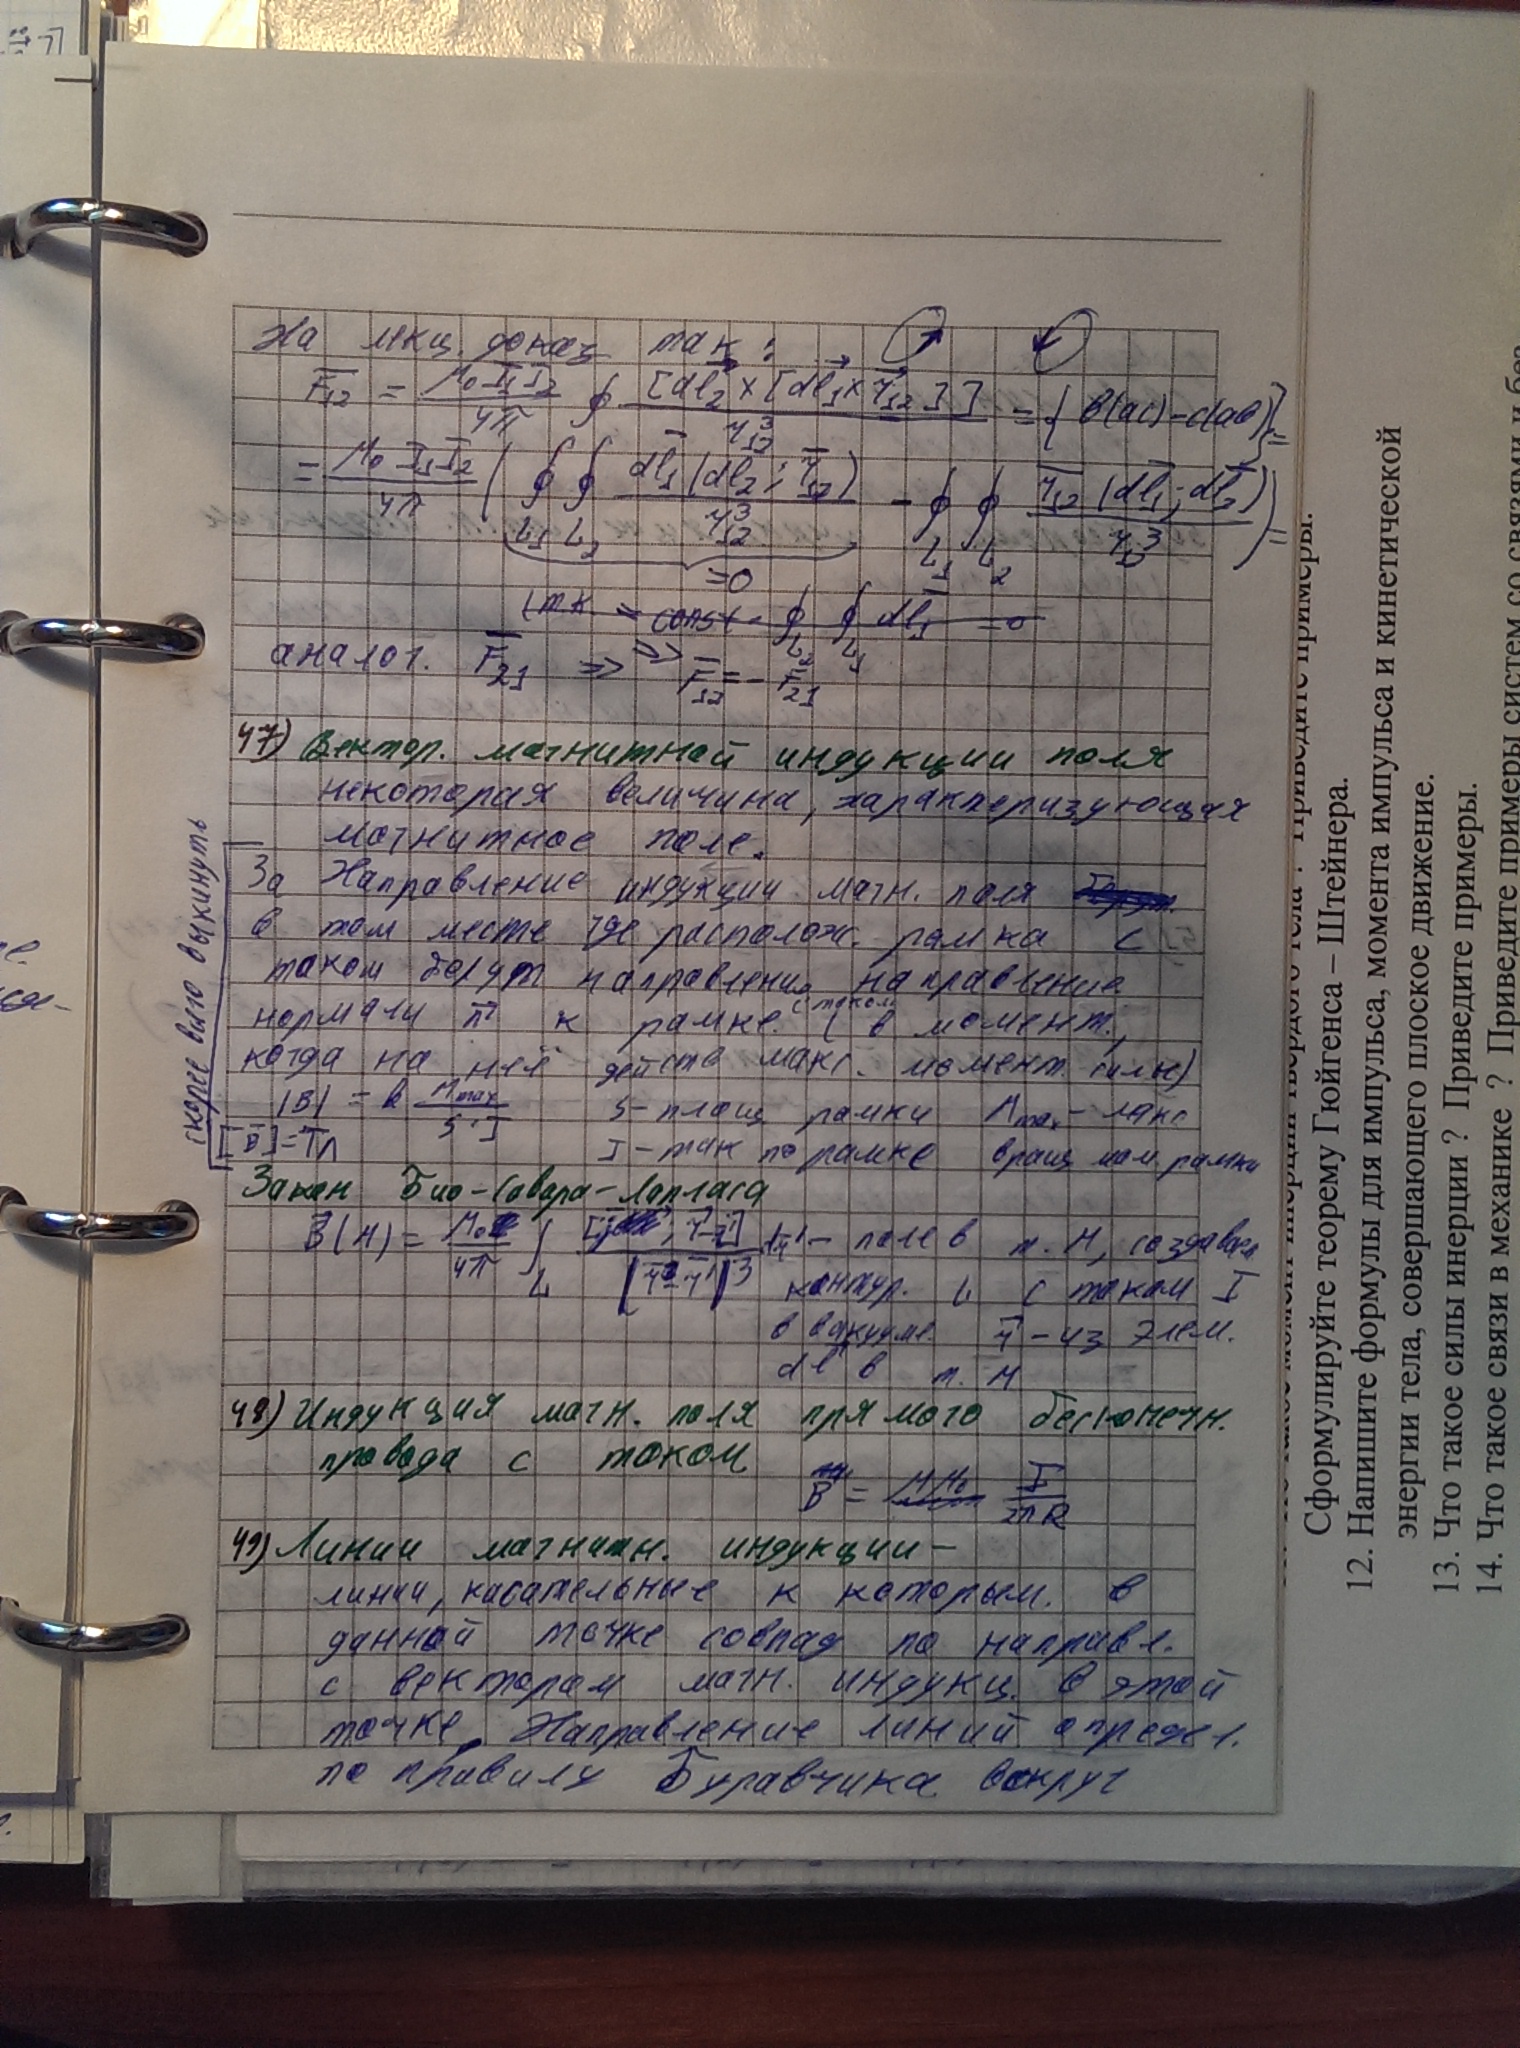 На лекц. доказ так:
F₁₂ = μ₀ I₁ I₂ / 4π ∮ [dl₂ × [dl₁ × r₁₂]] / r₁₂³ = { b(ac) – c(ab) } =
= μ₀ I₁ I₂ / 4π ( ∮ ∮ dl₁ (dl₂ ; r₁₂) / r₁₂³ – ∮ ∮ r₁₂ (dl₁ ; dl₂) / r₁₂³ ) =
L₁ L₂ L₁ L₂
=0
(тк = const · ∮ ∮ dl₁ = 0
L₂ L₁
аналог. F₂₁ => => F₁₂ = – F₂₁
47) Вектор. магнитной индукции поля
некоторая величина, характеризующая
магнитное поле.
скорее выго выкинуть
За Направление индукции магн. поля
в том месте где располож. рамка с
током берут направление направление
нормали n к рамке. (в момент,
с током
когда на неё действ макс. момент сил н)
|B| = k Mmax / S·I S – площ рамки Mmax – макс
[B] = Тл I – ток по рамке вращ мом. рамки
Закон Био-Савара-Лапласа
B(M) = μ₀ / 4π ∫ L [j ; r–r'] / |r–r'|³ dr' – поле в т. M, создавая
контур. L с током I
в вакууме. r – из элем.
dl в т. M
48) Индукция магн. поля прямого бесконечн.
провода с током
B = μμ₀ I / 2πR
49) Линии магнитн. индукции –
линии, касательные к которым. в
данной точке совпад по направл.
с вектором магн. индукц. в этой
точке. Направление линий определ.
по правилу Буравчика вокруг
Приведите примеры.
Сформулируйте теорему Гюйгенса – Штейнера.
12. Напишите формулы для импульса, момента импульса и кинетической
энергии тела, совершающего плоское движение.
13. Что такое силы инерции ? Приведите примеры.
14. Что такое связи в механике ? Приведите примеры систем со связями и без